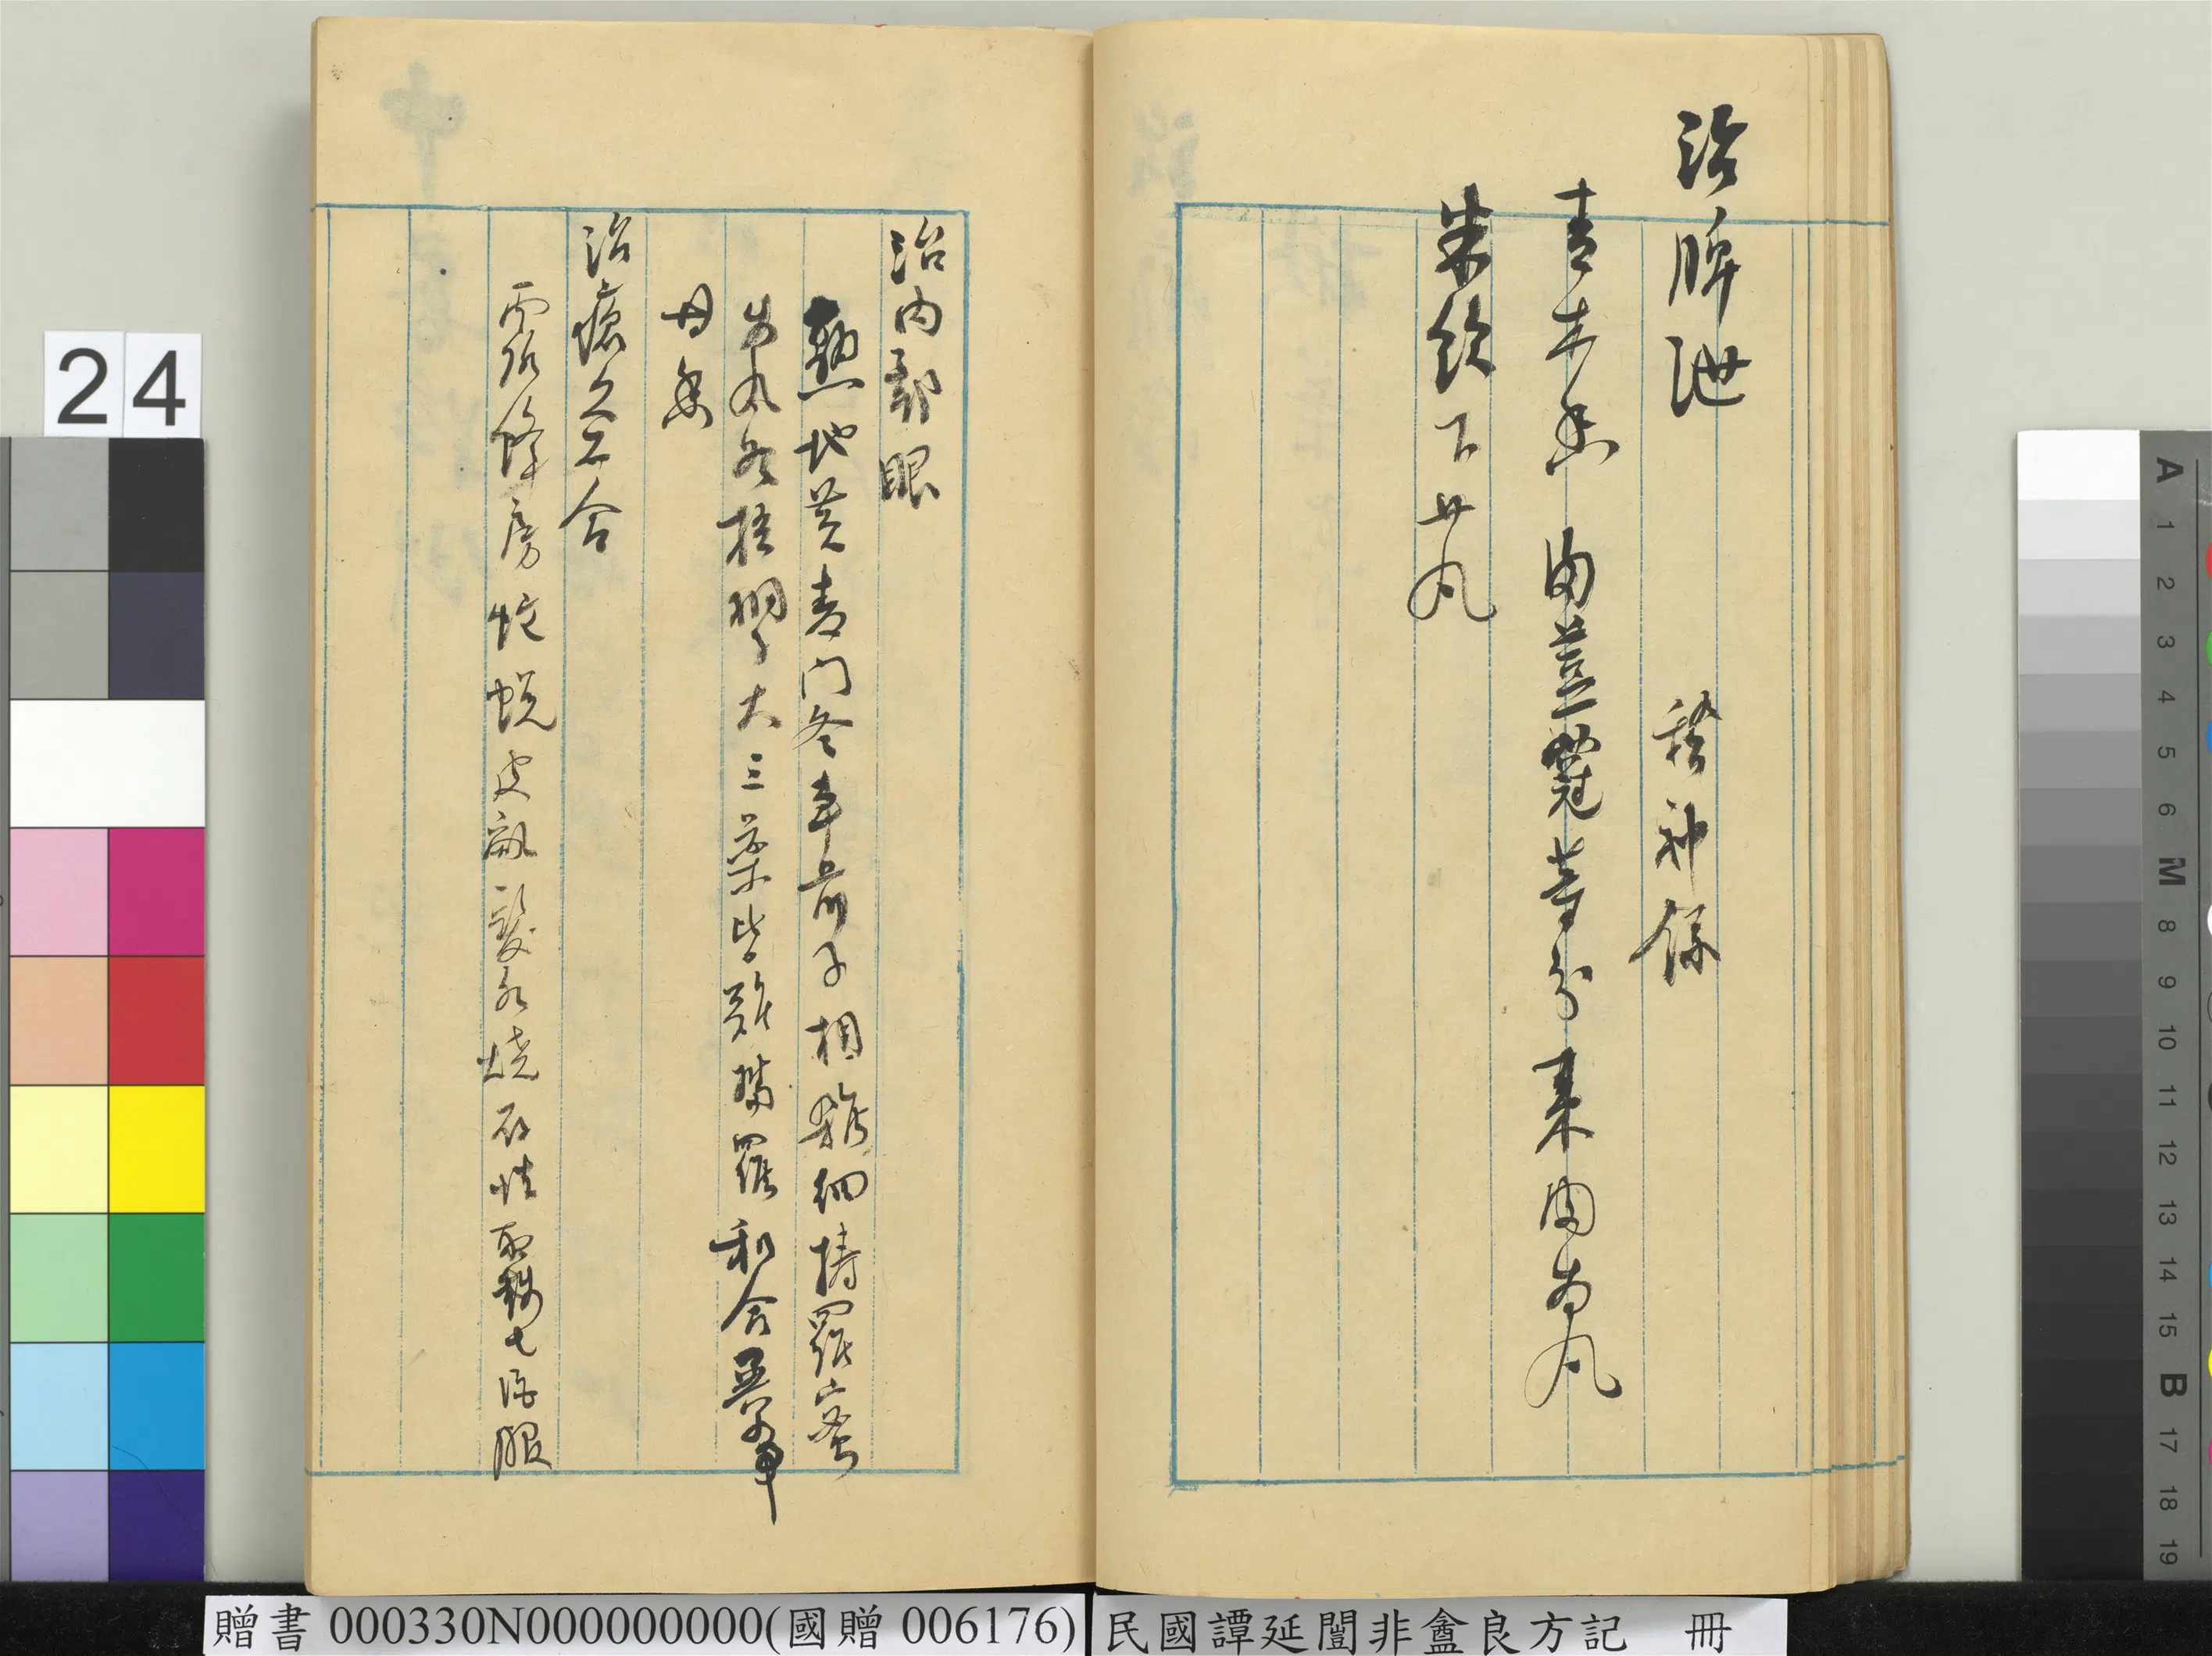 治脾泄 稽神錄
青木香 肉荳蔻等分 棗肉為丸
米飲下廿丸
治內鄣眼
熟地黃麥門冬車前子相雜細擣羅蜜
為丸如梧桐子大三藥皆難擣羅和合異常
甘香
治瘡久不合
露蜂房蛇蛻皮亂髮各燒存性取錢匕酒服
24
贈書 000330N000000000(國贈 006176)
民國譚延闓非盦良方記 冊
A 1 2 3 4 5 6 M 8 9 10 11 12 13 14 15 B 17 18 19